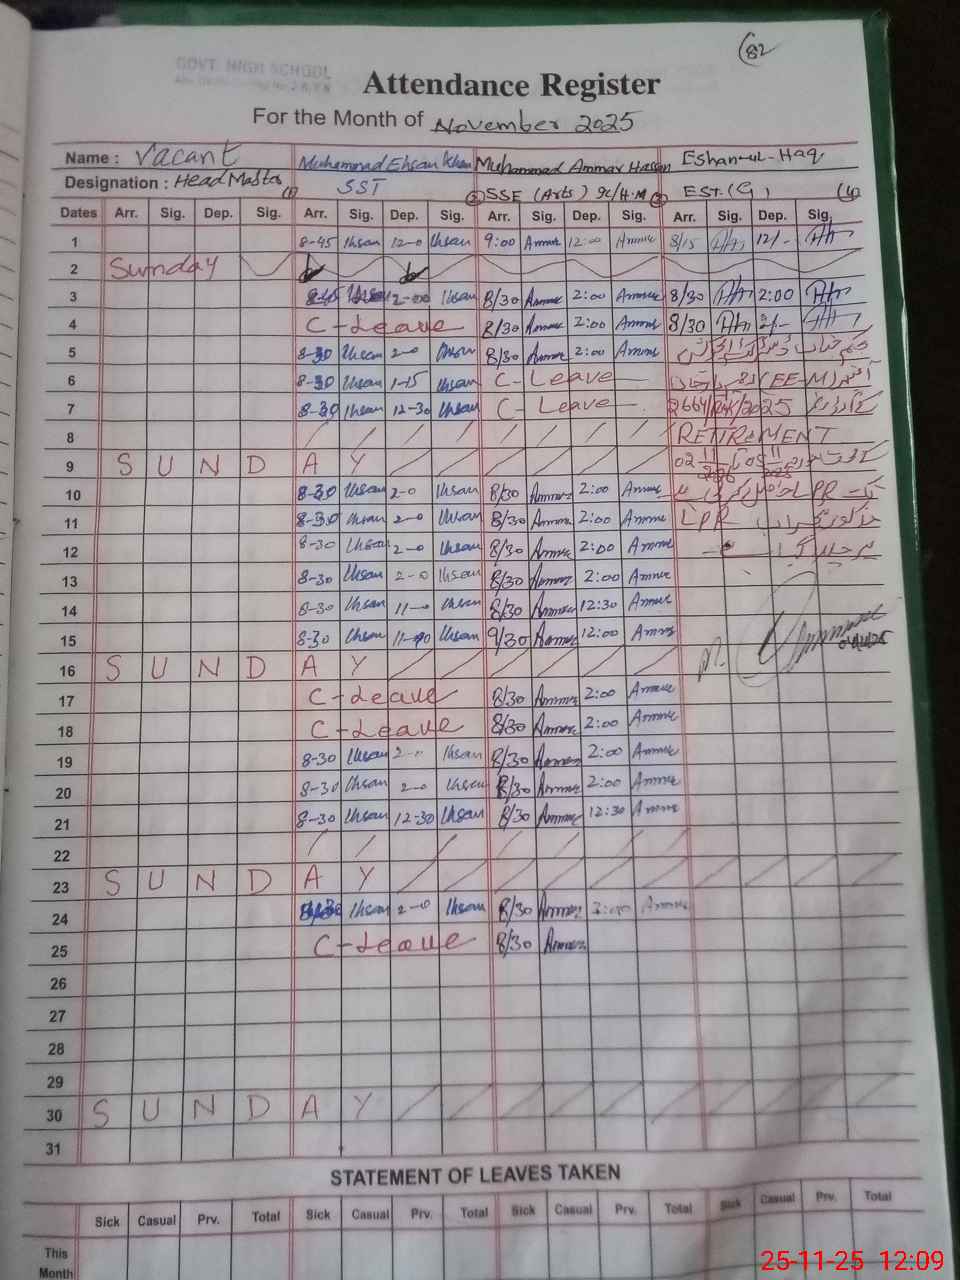 82
GOVT. HIGH SCHOOL
Attendance Register
For the Month of November 2025
Name : Vacant Muhammad Ehsan Khan Muhammad Ammar Hassan Eshan-ul-Haq
Designation : Head Master (1) SST (2) SSE (Arts) I/C H.M (3) EST.(G) (4)
Dates Arr. Sig. Dep. Sig. Arr. Sig. Dep. Sig. Arr. Sig. Dep. Sig. Arr. Sig. Dep. Sig.
1 8-45 Ihsan 12-0 Ihsan 9:00 Ammar 12:00 Ammar 8/15 12/-
2 Sunday
3 8-45 Ihsan 2-00 Ihsan 8/30 Ammar 2:00 Ammar 8/30 2:00
4 C-Leave 8/30 Ammar 2:00 Ammar 8/30 2/-
5 8-30 Ihsan 2-0 Ihsan 8/30 Ammar 2:00 Ammar
6 8-30 Ihsan 1-15 Ihsan C-Leave (EE-M)
7 8-30 Ihsan 12-30 Ihsan C-Leave 2025
8 RETIREMENT
9 S U N D A Y
10 8-30 Ihsan 2-0 Ihsan 8/30 Ammar 2:00 Ammar LPR
11 8-30 Ihsan 2-0 Ihsan 8/30 Ammar 2:00 Ammar LPR
12 8-30 Ihsan 2-0 Ihsan 8/30 Ammar 2:00 Ammar
13 8-30 Ihsan 2-0 Ihsan 8/30 Ammar 2:00 Ammar
14 8-30 Ihsan 11-0 Ihsan 8/30 Ammar 12:30 Ammar
15 8-30 Ihsan Ihsan 9/30 Ammar 12:00 Ammar
16 S U N D A Y
17 C-Leave 8/30 Ammar 2:00 Ammar
18 C-Leave 8/30 Ammar 2:00 Ammar
19 8-30 Ihsan 2-0 Ihsan 8/30 Ammar 2:00 Ammar
20 8-30 Ihsan 2-0 Ihsan 8/30 Ammar 2:00 Ammar
21 8-30 Ihsan 12-30 Ihsan 8/30 Ammar 12:30 Ammar
22
23 S U N D A Y
24 Ihsan 2-0 Ihsan 8/30 Ammar 2:00 Ammar
25 C-Leave 8/30 Ammar
26
27
28
29
30 S U N D A Y
31
STATEMENT OF LEAVES TAKEN
Sick Casual Prv. Total Sick Casual Prv. Total Sick Casual Prv. Total Sick Casual Prv. Total
This
Month
25-11-25 12:09